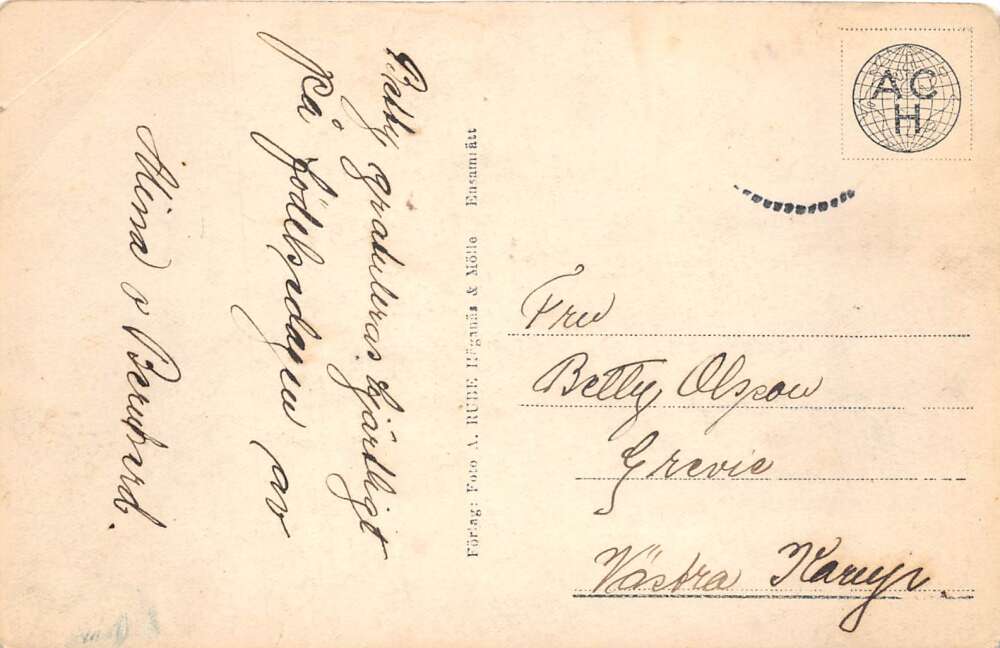 Betty gratuleras hjärtligt
på födelsedagen av
Alina o Bernhard.
Förlag: Foto A. RUDE Höganäs & Mölle Ensamrätt
A C
H
Fru
Betty Olsson
Grevie
Västra Karup.